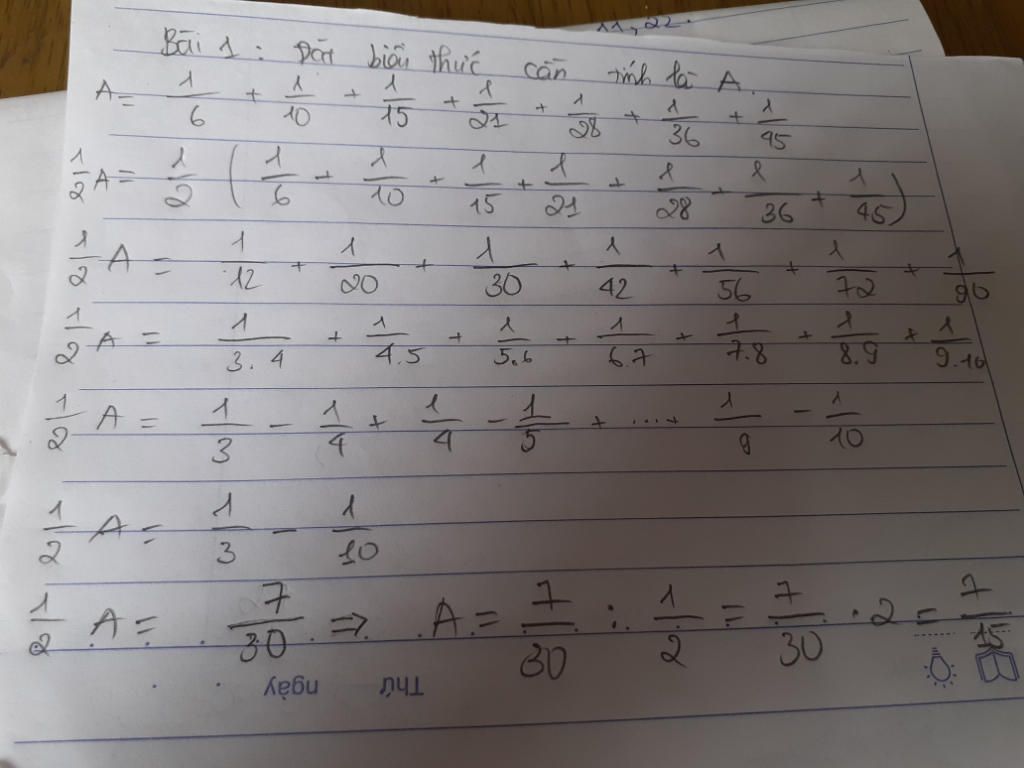 11, 22.
Bài 1: Đặt biểu thức cần tính là A.
A = 1/6 + 1/10 + 1/15 + 1/21 + 1/28 + 1/36 + 1/45
1/2 A = 1/2 (1/6 + 1/10 + 1/15 + 1/21 + 1/28 + 1/36 + 1/45)
1/2 A = 1/12 + 1/20 + 1/30 + 1/42 + 1/56 + 1/72 + 1/90
1/2 A = 1/3.4 + 1/4.5 + 1/5.6 + 1/6.7 + 1/7.8 + 1/8.9 + 1/9.10
1/2 A = 1/3 - 1/4 + 1/4 - 1/5 + .... + 1/9 - 1/10
1/2 A = 1/3 - 1/10
1/2 A = 7/30 => A = 7/30 : 1/2 = 7/30 . 2 = 7/15
Thứ ngày